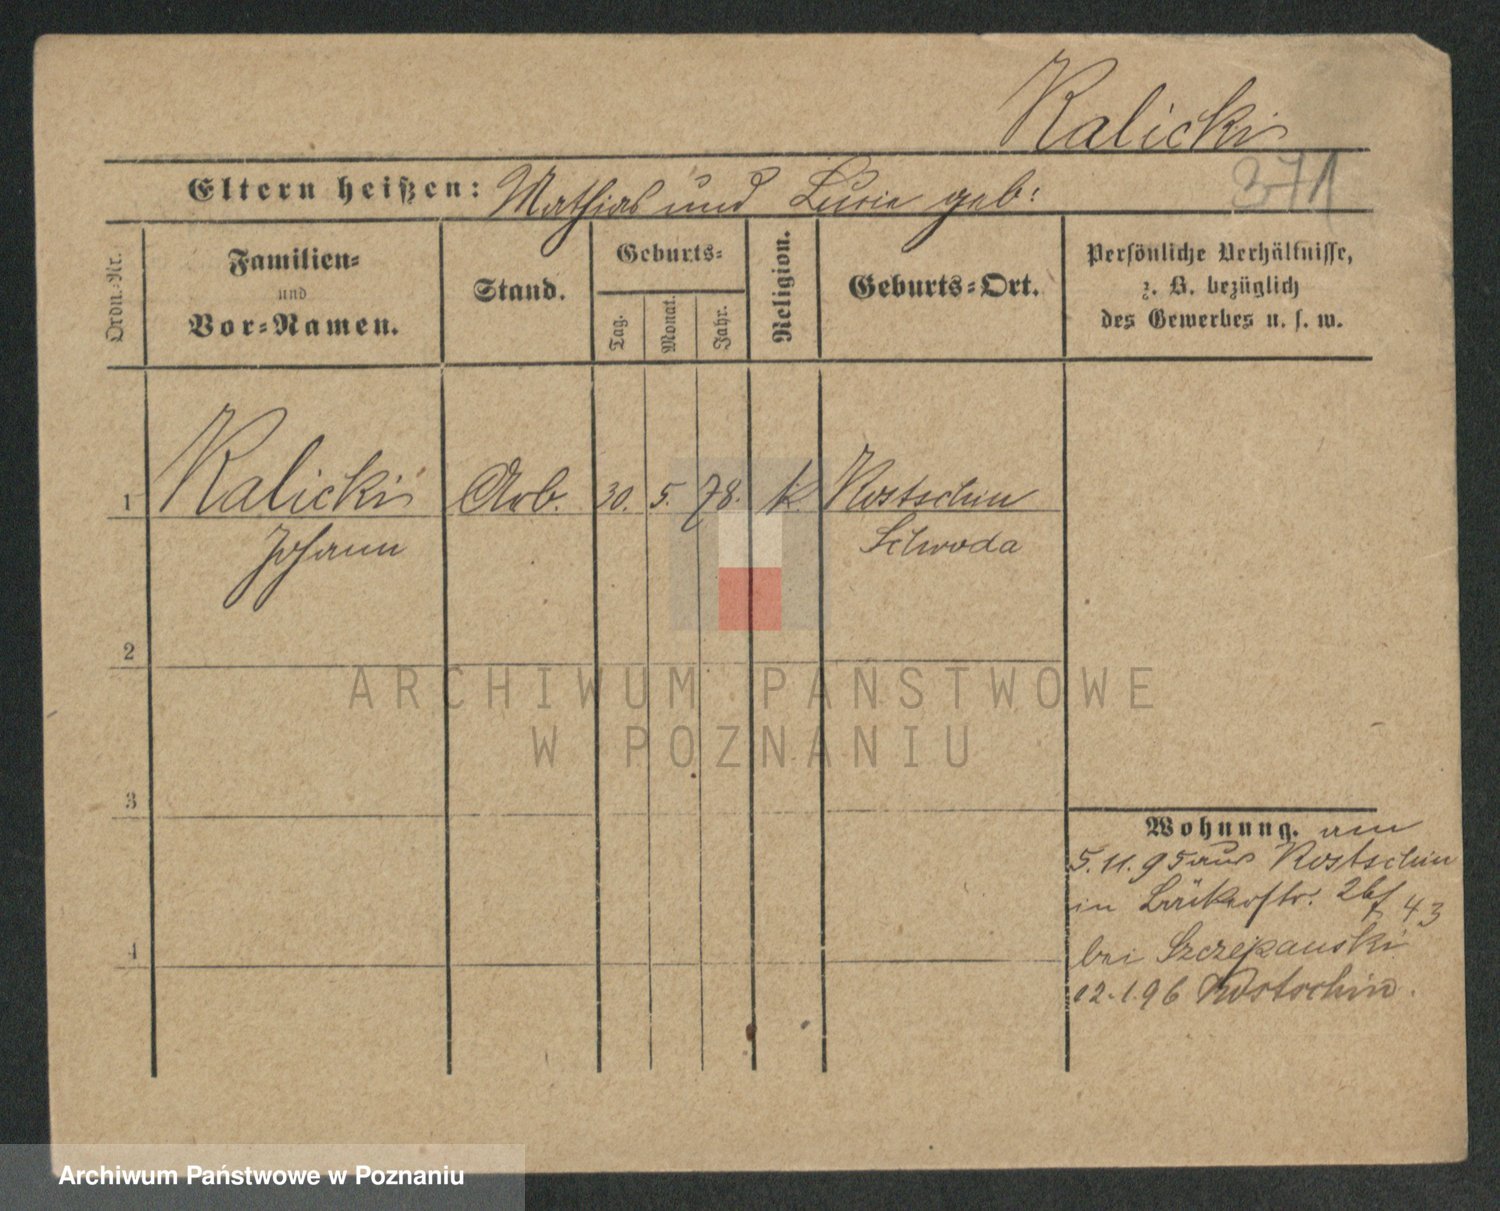 Kalicki
371
Eltern heißen: Mathias und Lucie geb:
Ordn.-Nr.
Familien-
und
Vor-Namen.
Stand.
Geburts-
Tag.
Monat.
Jahr.
Religion.
Geburts-Ort.
Persönliche Verhältnisse,
z. B. bezüglich
des Gewerbes u. s. w.
1 Kalicki Arb. 30. 5. 78. k. Kostschin
Johann Schroda
2
ARCHIWUM PAŃSTWOWE
W POZNANIU
3
Wohnung. am
5.11.95 aus Kostschin
in 43
bei Szczepanski
4
12.1.96 Kostschin.
Archiwum Państwowe w Poznaniu